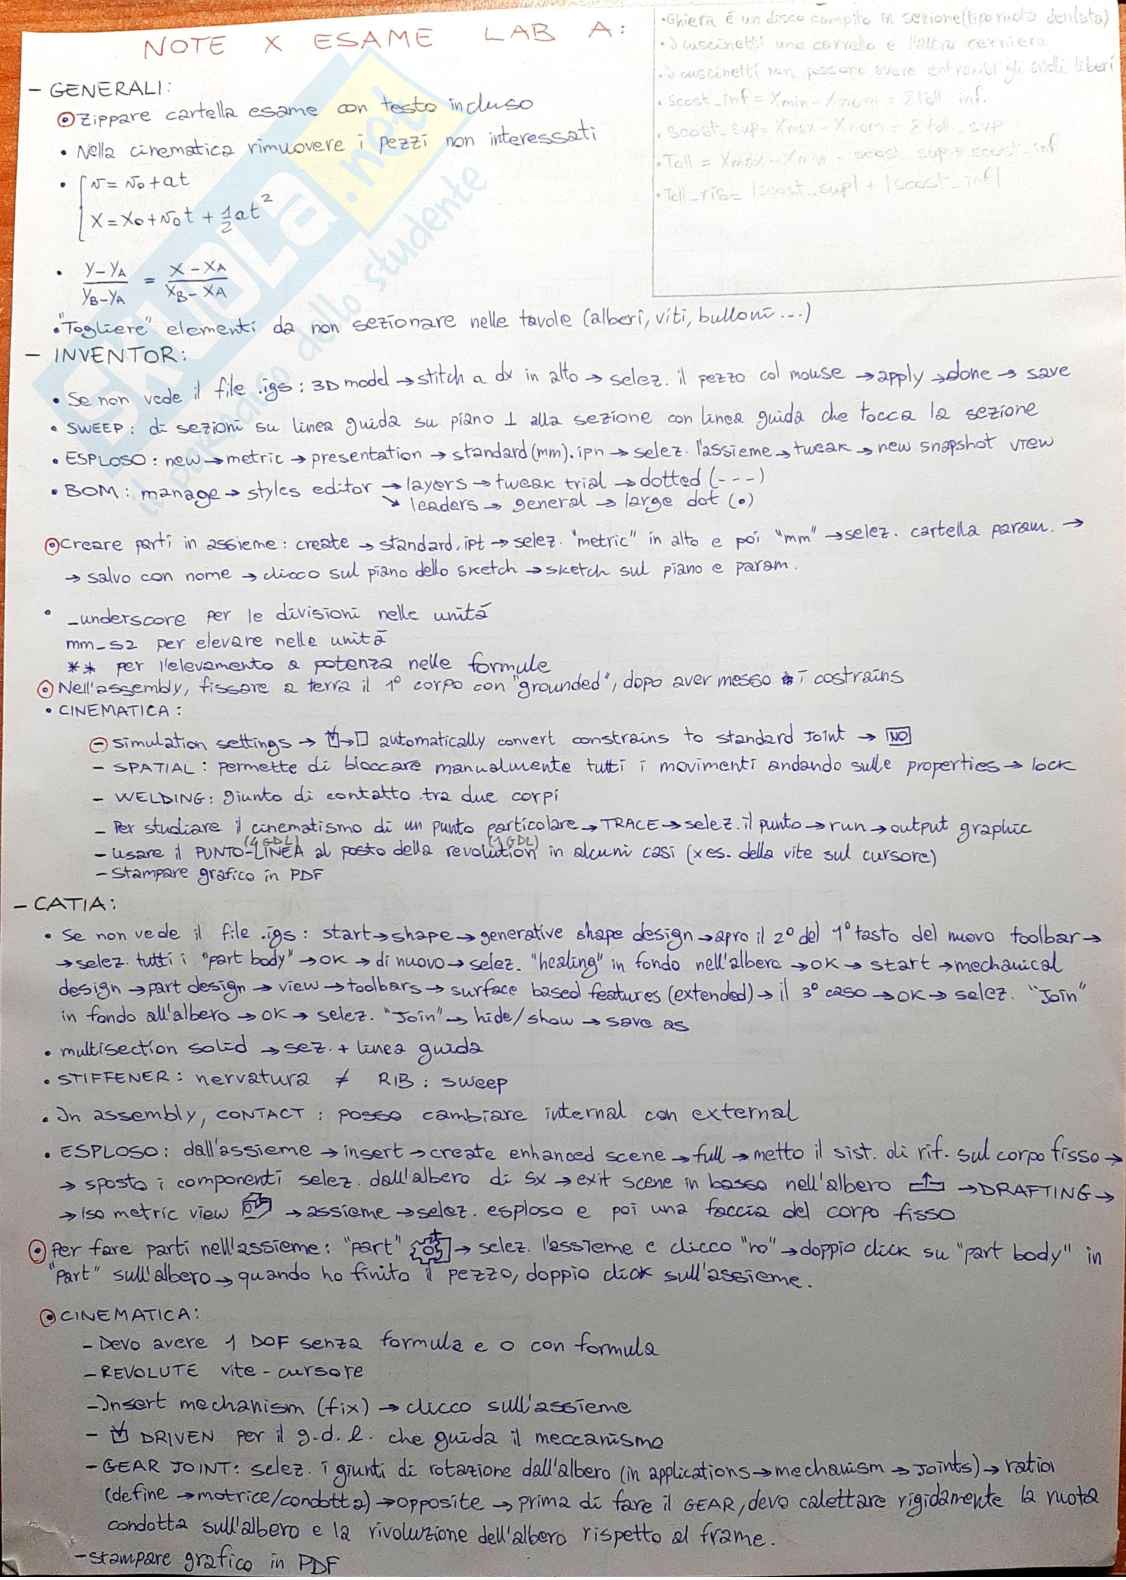 NOTE X ESAME LAB A:
• Ghiera è un disco compito in sezione (tipo ruota dentata)
• I cuscinetti uno carrello e l'altro cerniera
• I cuscinetti non possono avere entrambi gli anelli liberi
• scost_inf = Xmin - Xnom = Σtoll inf.
• scost_sup = Xmax - Xnom = Σtoll sup
• Toll = Xmax - Xmin = scost sup + scost_inf
• Toll_ris = |scost_sup| + |scost_inf|
- GENERALI:
• Zippare cartella esame con testo incluso
• Nella cinematica rimuovere i pezzi non interessati
• { v = v₀ + at
x = x₀ + v₀t + 1/2 at²
• y - yA / yB - yA = x - xA / xB - xA
• "Togliere" elementi da non sezionare nelle tavole (alberi, viti, bulloni ...)
- INVENTOR:
• Se non vede il file .igs : 3D model → stitch a dx in alto → selez. il pezzo col mouse → apply → done → save
• SWEEP : di sezioni su linea guida su piano ⊥ alla sezione con linea guida che tocca la sezione
• ESPLOSO : new → metric → presentation → standard (mm).ipn → selez. l'assieme → tweak → new snapshot view
• BOM : manage → styles editor → layers → tweak trial → dotted (---)
↘ leaders → general → large dot (•)
• Creare parti in assieme : create → standard.ipt → selez. "metric" in alto e poi "mm" → selez. cartella param. →
→ salvo con nome → clicco sul piano dello sketch → sketch sul piano e param.
• _underscore per le divisioni nelle unità
mm_s2 per elevare nelle unità
** per l'elevamento a potenza nelle formule
• Nell'assembly, fissare a terra il 1° corpo con "grounded", dopo aver messo i costrains
• CINEMATICA :
- simulation settings → ☑→☐ automatically convert constrains to standard joint → NO
- SPATIAL : permette di bloccare manualmente tutti i movimenti andando sulle properties → lock
- WELDING : giunto di contatto tra due corpi
- Per studiare il cinematismo di un punto particolare → TRACE → selez. il punto → run → output graphic
- Usare il PUNTO-LINEA (4 GDL) al posto della revolution (1 GDL) in alcuni casi (x es. della vite sul cursore)
- Stampare grafico in PDF
- CATIA :
• Se non vede il file .igs : start → shape → generative shape design → apro il 2° del 1° tasto del nuovo toolbar →
→ selez. tutti i "part body" → OK → di nuovo → selez. "healing" in fondo nell'albero → OK → start → mechanical
design → part design → view → toolbars → surface based features (extended) → il 3° caso → OK → selez. "Join"
in fondo all'albero → OK → selez. "Join" → hide/show → save as
• multisection solid → sez. + linea guida
• STIFFENER : nervatura ≠ RIB : sweep
• In assembly, CONTACT : posso cambiare internal con external
• ESPLOSO : dall'assieme → insert → create enhanced scene → full → metto il sist. di rif. sul corpo fisso →
→ sposto i componenti selez. dall'albero di sx → exit scene in basso nell'albero → DRAFTING →
→ Iso metric view → assieme → selez. esploso e poi una faccia del corpo fisso
• Per fare parti nell'assieme : "part" → selez. l'assieme e clicco "no" → doppio click su "part body" in
"Part" sull'albero → quando ho finito il pezzo, doppio click sull'assieme.
• CINEMATICA :
- Devo avere 1 DOF senza formula e 0 con formula
- REVOLUTE vite - cursore
- Insert mechanism (fix) → clicco sull'assieme
- ☑ DRIVEN per il g.d.l. che guida il meccanismo
- GEAR JOINT : selez. i giunti di rotazione dall'albero (in applications → mechanism → Joints) → ratio
(define → motrice/condotta) → opposite → prima di fare il GEAR, devo calettare rigidamente la ruota
condotta sull'albero e la rivoluzione dell'albero rispetto al frame.
- stampare grafico in PDF
SKUOLA.net
il paradiso dello studente